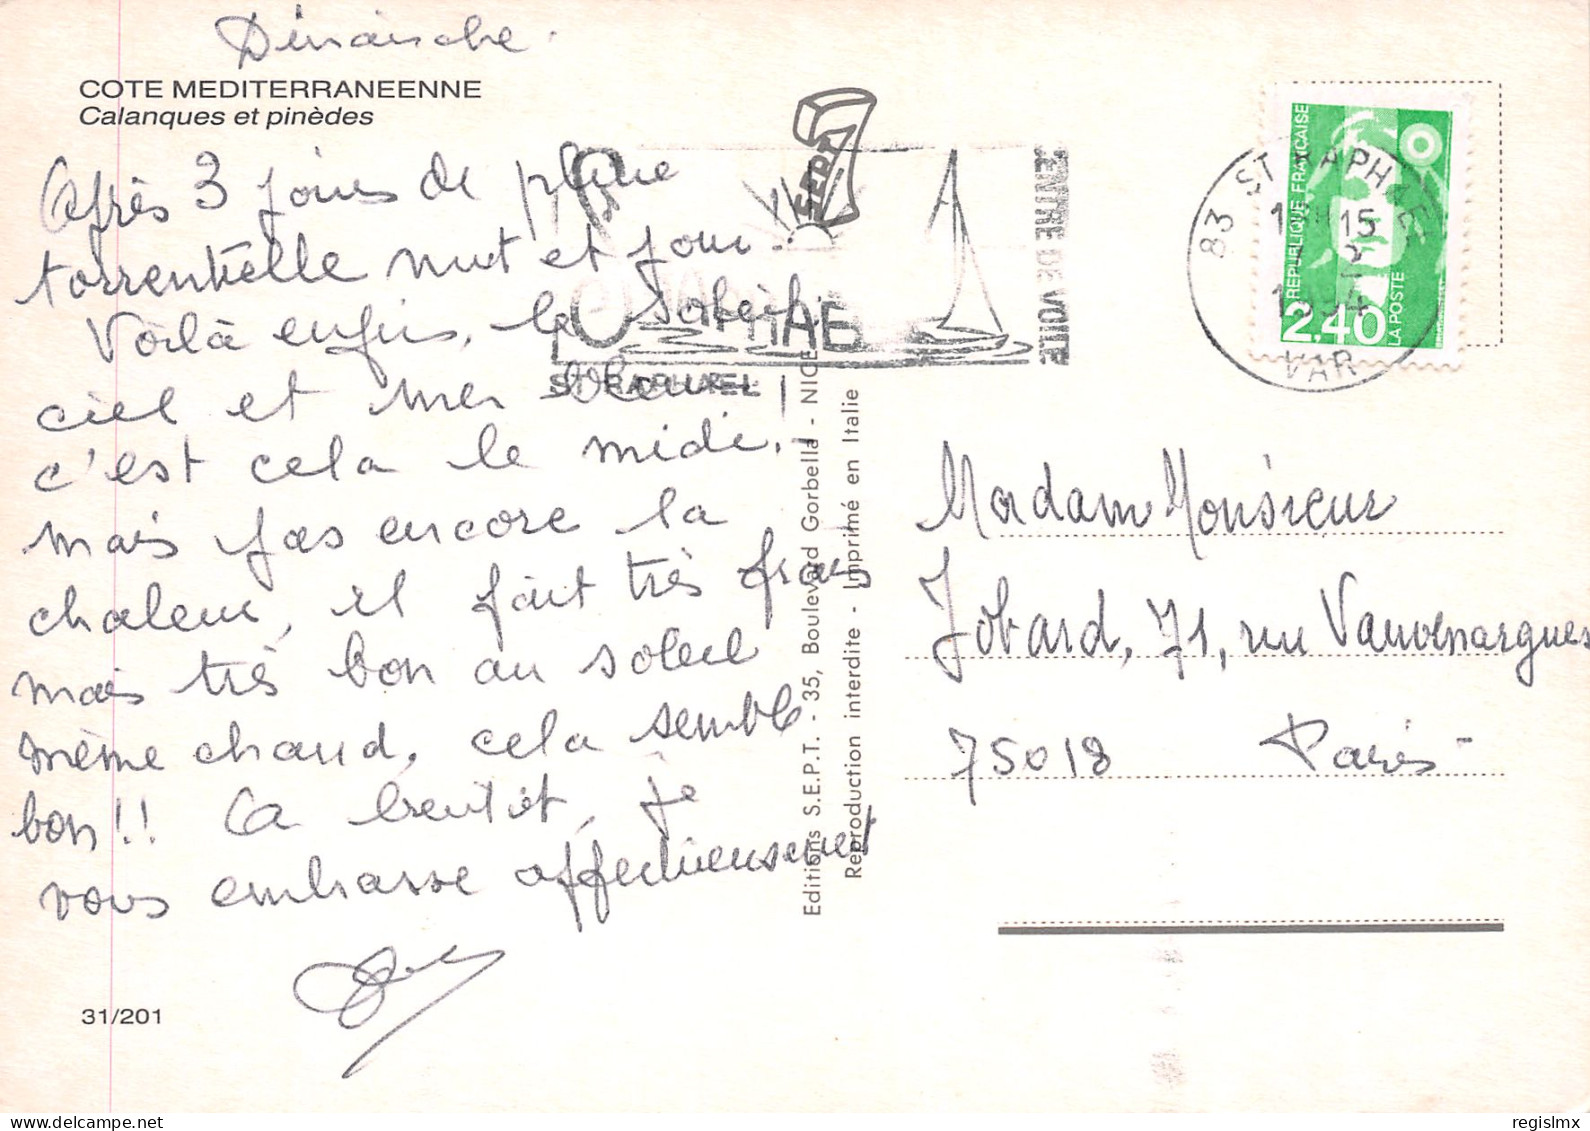 Dimanche.
COTE MEDITERRANEENNE
Calanques et pinèdes
Après 3 jours de pluie
torrentielle nuit et jour
Voilà enfin, le soleil.
ciel et mer bleu !
c'est cela le midi.
mais pas encore la
chaleur, il fait très frais
mais très bon au soleil
même chaud, cela semble
bon!! A bientôt, je
vous embrasse affectueusement
31/201
Editions S.E.P.T. - 35, Boulevard Gorbella - NICE
Reproduction interdite - Imprimé en Italie
SEPT
ST RAPHAEL
ENTRE DE VOILE
83 ST RAPHAEL
15
1994
VAR
REPUBLIQUE FRANÇAISE
2,40
LA POSTE
Madam Monsieur
Jobard, 71, rue Vauvenargues
75018 Paris-
regislmx